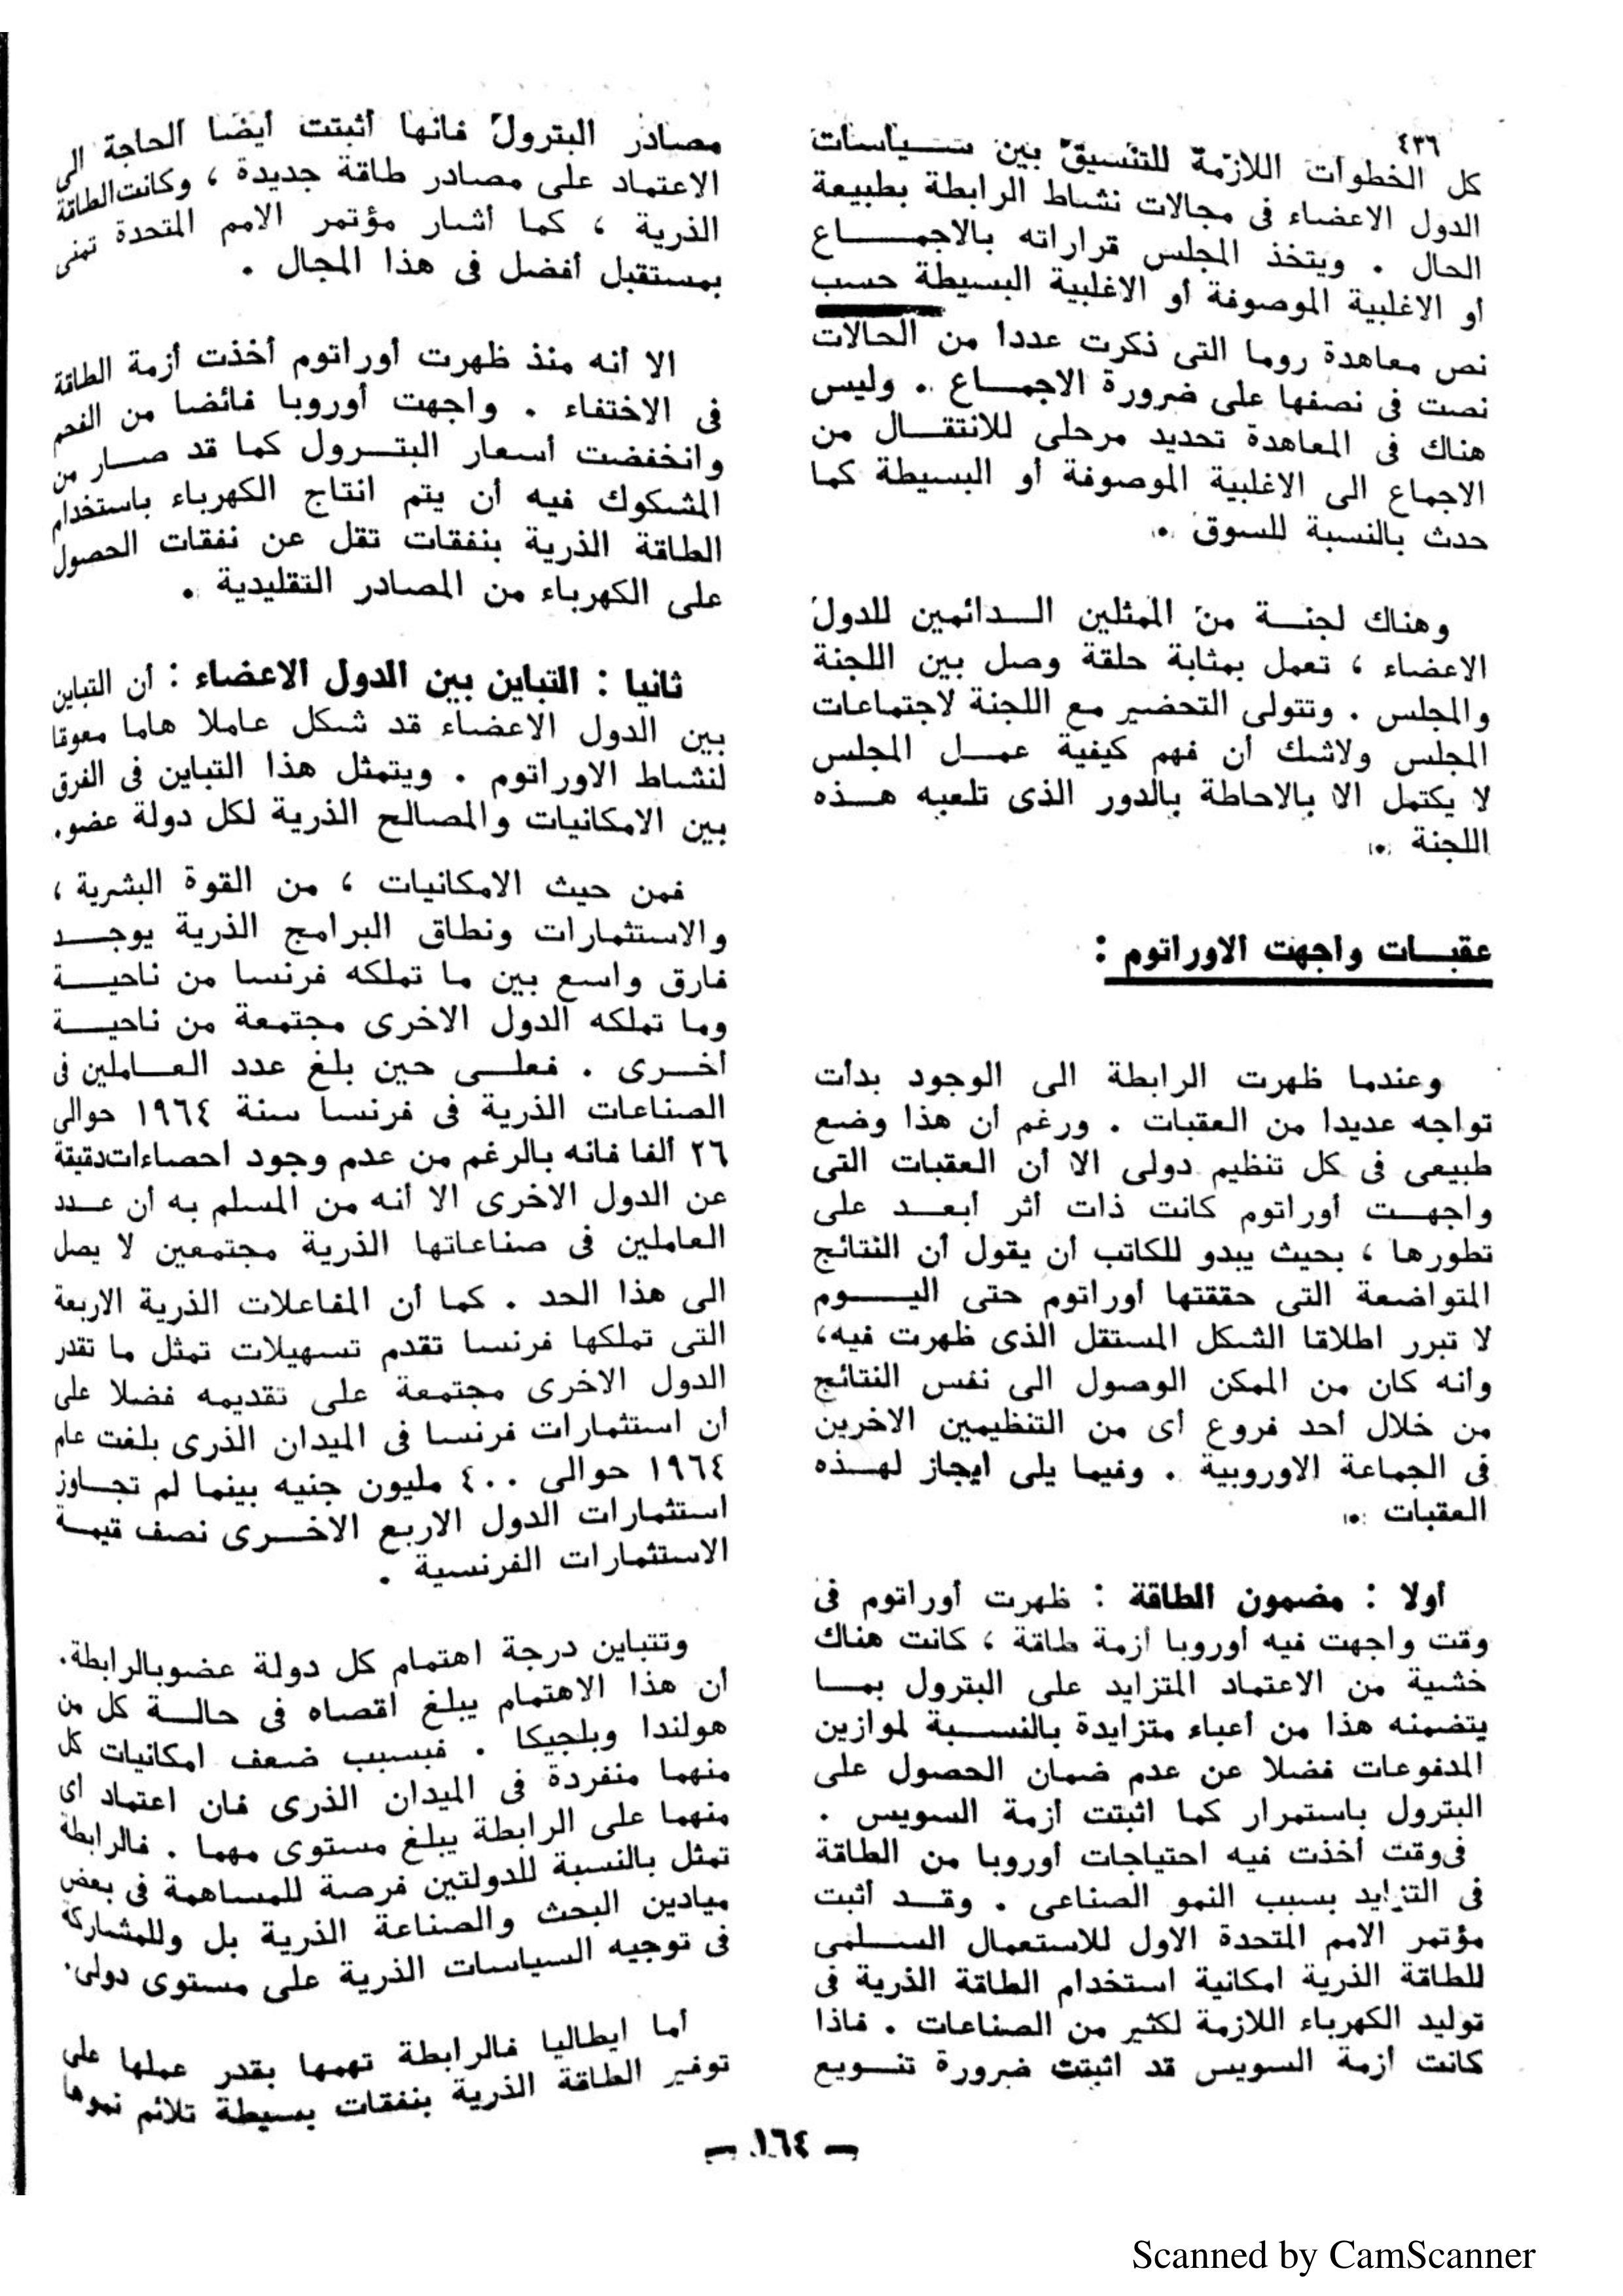 ٤٣٦
كل الخطوات اللازمة للتنسيق بين سياسات
الدول الاعضاء فى مجالات نشاط الرابطة بطبيعة
الحال . ويتخذ المجلس قراراته بالاجماع
أو الاغلبية الموصوفة أو الاغلبية البسيطة حسب
نص معاهدة روما التى ذكرت عددا من الحالات
نصت فى نصفها على ضرورة الاجماع . وليس
هناك فى المعاهدة تحديد مرحلى للانتقال من
الاجماع الى الاغلبية الموصوفة أو البسيطة كما
حدث بالنسبة للسوق .
وهناك لجنة من الممثلين الدائمين للدول
الاعضاء ، تعمل بمثابة حلقة وصل بين اللجنة
والمجلس . وتتولى التحضير مع اللجنة لاجتماعات
المجلس ولاشك أن فهم كيفية عمل المجلس
لا يكتمل الا بالاحاطة بالدور الذى تلعبه هذه
اللجنة .
عقبات واجهت الاوراتوم :
وعندما ظهرت الرابطة الى الوجود بدأت
تواجه عديدا من العقبات . ورغم أن هذا وضع
طبيعى فى كل تنظيم دولى الا أن العقبات التى
واجهت أوراتوم كانت ذات أثر أبعد على
تطورها ، بحيث يبدو للكاتب أن يقول أن النتائج
المتواضعة التى حققتها أوراتوم حتى اليوم
لا تبرر اطلاقا الشكل المستقل الذى ظهرت فيه،
وانه كان من الممكن الوصول الى نفس النتائج
من خلال أحد فروع أى من التنظيمين الاخرين
فى الجماعة الاوروبية . وفيما يلى ايجاز لهذه
العقبات .
أولا : مضمون الطاقة : ظهرت أوراتوم فى
وقت واجهت فيه أوروبا أزمة طاقة ، كانت هناك
خشية من الاعتماد المتزايد على البترول بما
يتضمنه هذا من أعباء متزايدة بالنسبة لموازين
المدفوعات فضلا عن عدم ضمان الحصول على
البترول باستمرار كما اثبتت أزمة السويس .
فى وقت أخذت فيه احتياجات أوروبا من الطاقة
فى التزايد بسبب النمو الصناعى . وقد أثبت
مؤتمر الامم المتحدة الاول للاستعمال السلمى
للطاقة الذرية امكانية استخدام الطاقة الذرية فى
توليد الكهرباء اللازمة لكثير من الصناعات . فاذا
كانت أزمة السويس قد اثبتت ضرورة تنويع
مصادر البترول فانها أثبتت أيضا الحاجة الى
الاعتماد على مصادر طاقة جديدة ، وكانت الطاقة
الذرية ، كما أشار مؤتمر الامم المتحدة تمنى
بمستقبل أفضل فى هذا المجال .
الا أنه منذ ظهرت أوراتوم أخذت أزمة الطاقة
فى الاختفاء . واجهت أوروبا فائضا من الفحم
وانخفضت أسعار البترول كما قد صار من
المشكوك فيه أن يتم انتاج الكهرباء باستخدام
الطاقة الذرية بنفقات تقل عن نفقات الحصول
على الكهرباء من المصادر التقليدية .
ثانيا : التباين بين الدول الاعضاء : أن التباين
بين الدول الاعضاء قد شكل عاملا هاما معوقا
لنشاط الاوراتوم . ويتمثل هذا التباين فى الفرق
بين الامكانيات والمصالح الذرية لكل دولة عضو.
فمن حيث الامكانيات ، من القوة البشرية ،
والاستثمارات ونطاق البرامج الذرية يوجد
فارق واسع بين ما تملكه فرنسا من ناحية
وما تملكه الدول الاخرى مجتمعة من ناحية
أخرى . فعلى حين بلغ عدد العاملين فى
الصناعات الذرية فى فرنسا سنة ١٩٦٤ حوالى
٢٦ ألفا فانه بالرغم من عدم وجود احصاءات دقيقة
عن الدول الاخرى الا أنه من المسلم به أن عدد
العاملين فى صناعاتها الذرية مجتمعين لا يصل
الى هذا الحد . كما أن المفاعلات الذرية الاربعة
التى تملكها فرنسا تقدم تسهيلات تمثل ما تقدر
الدول الاخرى مجتمعة على تقديمه فضلا على
أن استثمارات فرنسا فى الميدان الذرى بلغت عام
١٩٦٤ حوالى ٤٠٠ مليون جنيه بينما لم تجاوز
استثمارات الدول الاربع الاخرى نصف قيمة
الاستثمارات الفرنسية .
وتتباين درجة اهتمام كل دولة عضو بالرابطة.
أن هذا الاهتمام يبلغ اقصاه فى حالة كل من
هولندا وبلجيكا . فبسبب ضعف امكانيات كل
منهما منفردة فى الميدان الذرى فان اعتماد أى
منهما على الرابطة يبلغ مستوى مهما . فالرابطة
تمثل بالنسبة للدولتين فرصة للمساهمة فى بعض
ميادين البحث والصناعة الذرية بل وللمشاركة
فى توجيه السياسات الذرية على مستوى دولى.
أما ايطاليا فالرابطة تهمها بقدر عملها على
توفير الطاقة الذرية بنفقات بسيطة تلائم نموها
— ١٦٤ —
Scanned by CamScanner